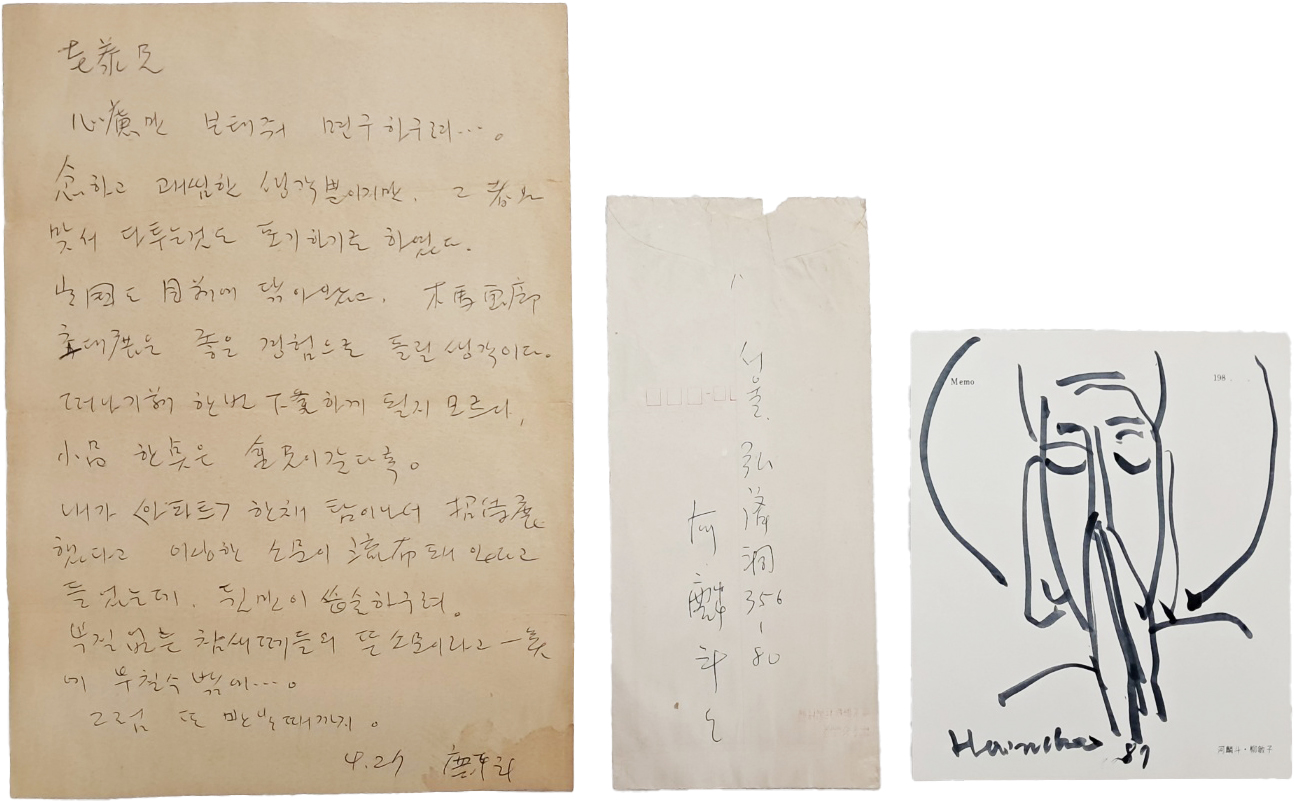 兄
心慮만 보태줘 면구하구려…。
念하고 괘씸한 생각뿐이지만, 그 者와
맞서 다투는것도 포기하기로 하였다.
도 目前에 닦아왔고, 木馬画廊
초대展은 좋은 경험으로 돌릴 생각이다。
떠나기前 한번 下
하게 될지 모르나,
小品 한点은
내가 <아파트> 한채 탐이나서 招待展
했다고 이상한 소문이 流布돼 있다고
들었는데, 뒷맛이 씁슬하구려。
부질없는 참새떼들의 뜬소문이라고 一笑
에 부칠수 밖에…。
그럼 또 만날때까지。
4.27 麟斗
서울. 弘濟洞 356-80
河麟斗
Memo
198
Hainchoo 87
河麟斗・柳敏子